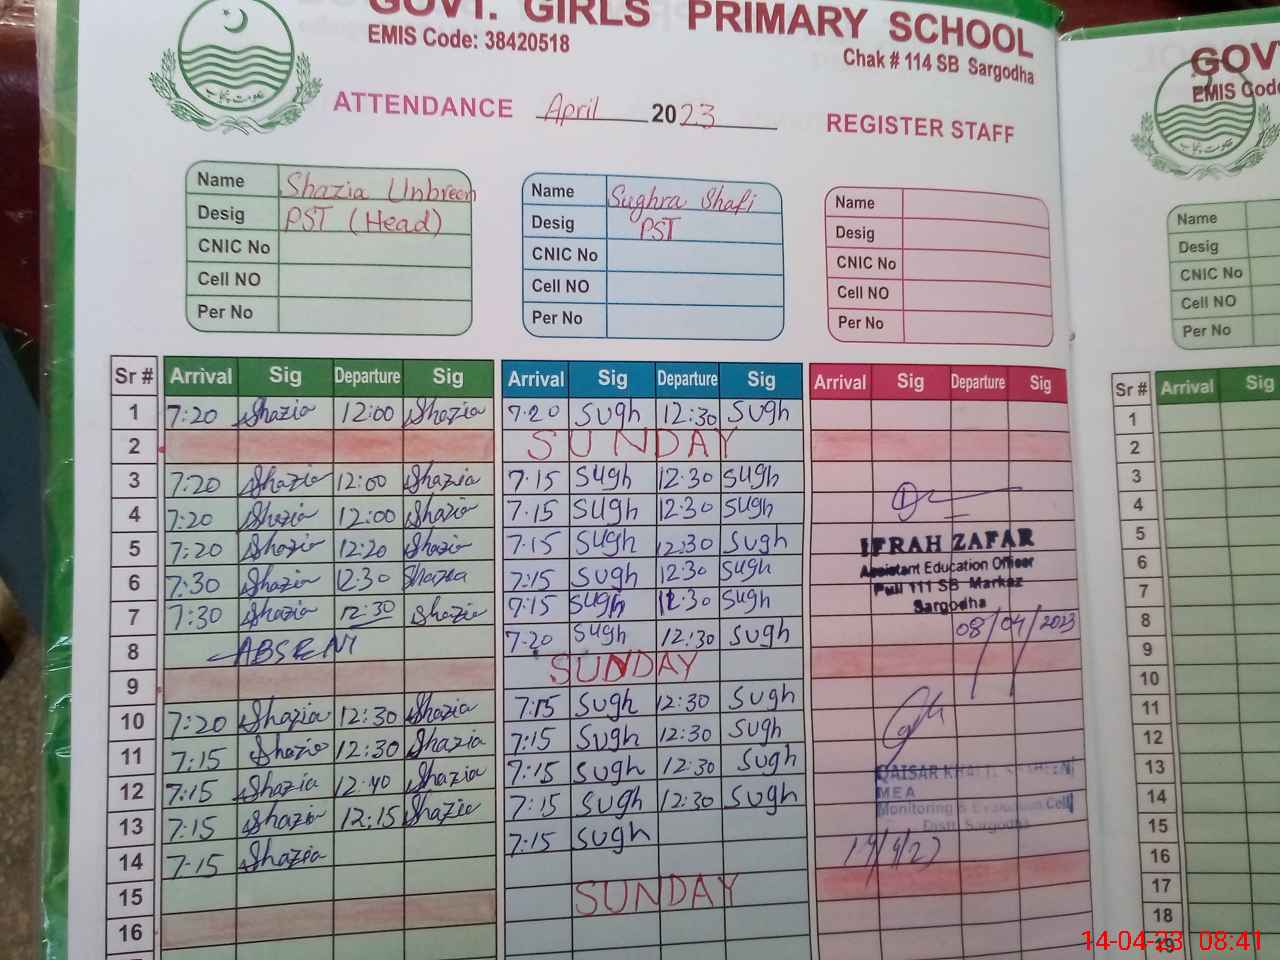 GOVT. GIRLS PRIMARY SCHOOL
EMIS Code: 38420518
Chak # 114 SB Sargodha
حکومت پنجاب
ATTENDANCE April 2023 REGISTER STAFF
Name Shazia Unbreen
Desig PST (Head)
CNIC No
Cell NO
Per No
Name Sughra Shafi
Desig PST
CNIC No
Cell NO
Per No
Name
Desig
CNIC No
Cell NO
Per No
Sr # Arrival Sig Departure Sig Arrival Sig Departure Sig Arrival Sig Departure Sig
1 7:20 Shazia 12:00 Shazia 7.20 Sugh 12:30 Sugh
2 SUNDAY
3 7:20 Shazia 12:00 Shazia 7.15 Sugh 12.30 Sugh
4 7:20 Shazia 12:00 Shazia 7.15 Sugh 12:30 Sugh
5 7:20 Shazia 12:20 Shazia 7.15 Sugh 12:30 Sugh
6 7:30 Shazia 12:30 Shazia 7:15 Sugh 12:30 Sugh
7 7:30 Shazia 12:30 Shazia 7:15 Sugh 12:30 Sugh
8 ABSENT 7.20 Sugh 12:30 Sugh
9 SUNDAY
10 7:20 Shazia 12:30 Shazia 7:15 Sugh 12:30 Sugh
11 7:15 Shazia 12:30 Shazia 7:15 Sugh 12:30 Sugh
12 7:15 Shazia 12:40 Shazia 7:15 Sugh 12:30 Sugh
13 7:15 Shazia 12:15 Shazia 7:15 Sugh 12:30 Sugh
14 7:15 Shazia 7:15 Sugh
15
16 SUNDAY
IFRAH ZAFAR
Assistant Education Officer
Pull 111 SB Markaz
Sargodha
08/04/2023
QAISAR
MEA
Monitoring & Evaluation Cell
Distt. Sargodha
GOV
EMIS Code
حکومت پنجاب
Name
Desig
CNIC No
Cell NO
Per No
Sr # Arrival Sig
1
2
3
4
5
6
7
8
9
10
11
12
13
14
15
16
17
18
19
14-04-23 08:41